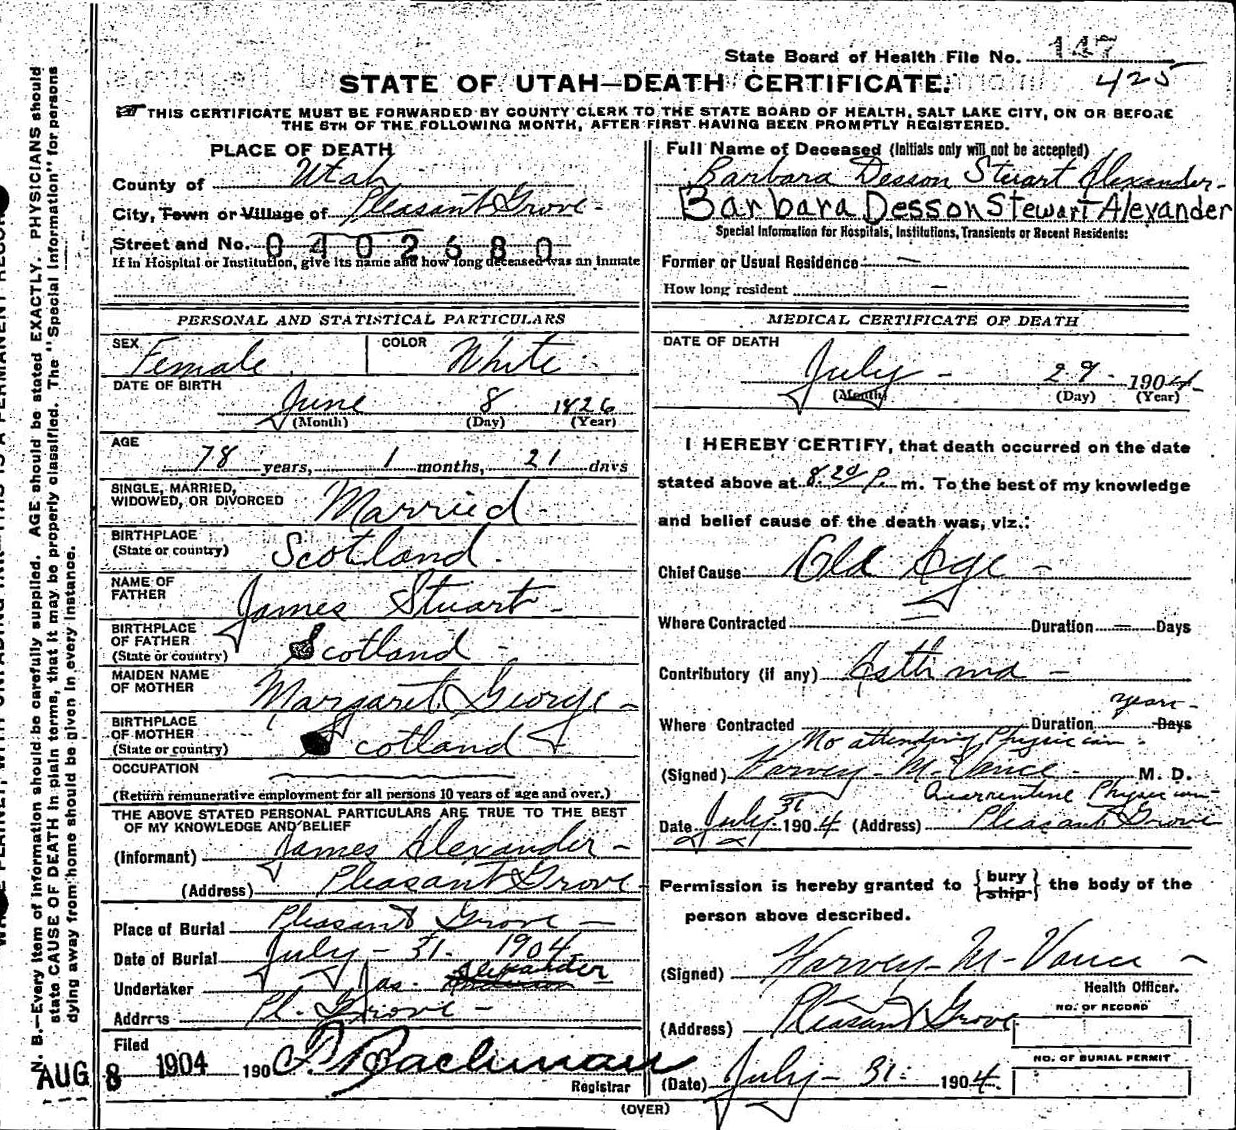 State Board of Health File No. 147
425
STATE OF UTAH—DEATH CERTIFICATE.
THIS CERTIFICATE MUST BE FORWARDED BY COUNTY CLERK TO THE STATE BOARD OF HEALTH, SALT LAKE CITY, ON OR BEFORE
THE 5TH OF THE FOLLOWING MONTH, AFTER FIRST HAVING BEEN PROMPTLY REGISTERED.
PLACE OF DEATH
County of Utah
City, Town or Village of Pleasant Grove
Street and No. 0402680
If in Hospital or Institution, give its name and how long deceased was an inmate
PERSONAL AND STATISTICAL PARTICULARS
SEX Female COLOR White
DATE OF BIRTH
June 8 1826
(Month) (Day) (Year)
AGE
78 years, 1 months, 21 days
SINGLE, MARRIED,
WIDOWED, OR DIVORCED Married
BIRTHPLACE
(State or country) Scotland
NAME OF
FATHER James Stuart
BIRTHPLACE
OF FATHER
(State or country) Scotland
MAIDEN NAME
OF MOTHER Margaret George
BIRTHPLACE
OF MOTHER
(State or country) Scotland
OCCUPATION
(Return remunerative employment for all persons 10 years of age and over.)
THE ABOVE STATED PERSONAL PARTICULARS ARE TRUE TO THE BEST
OF MY KNOWLEDGE AND BELIEF
(Informant) James Alexander
(Address) Pleasant Grove
Place of Burial Pleasant Grove
Date of Burial July - 31 - 1904
Undertaker Jas. Alexander
Address Pl. Grove
Filed
AUG 8 1904 190 P. Bachman
Registrar
Full Name of Deceased (Initials only will not be accepted)
Barbara Desson Stuart Alexander
Barbara Desson Stewart Alexander
Special Information for Hospitals, Institutions, Transients or Recent Residents:
Former or Usual Residence —
How long resident —
MEDICAL CERTIFICATE OF DEATH
DATE OF DEATH
July - 29 - 1904
(Month) (Day) (Year)
I HEREBY CERTIFY, that death occurred on the date
stated above at 8.20 P. m. To the best of my knowledge
and belief cause of the death was, viz.:
Chief Cause Old Age —
Where Contracted — Duration — Days
Contributory (if any) Asthma —
years
Where Contracted Duration Days
No attending Physician.
(Signed) Harvey M. Vance M. D.
Quarrentine Physician
Date July 31 1904 (Address) Pleasant Grove
Permission is hereby granted to {bury ship} the body of the
person above described.
(Signed) Harvey M. Vance
Health Officer.
(Address) Pleasant Grove
NO. OF RECORD
NO. OF BURIAL PERMIT
(Date) July - 31 - 1904.
(OVER)
N. B.—Every item of information should be carefully supplied. AGE should be stated EXACTLY. PHYSICIANS should
state CAUSE OF DEATH in plain terms, that it may be properly classified. The "Special Information" for persons
dying away from home should be given in every instance.